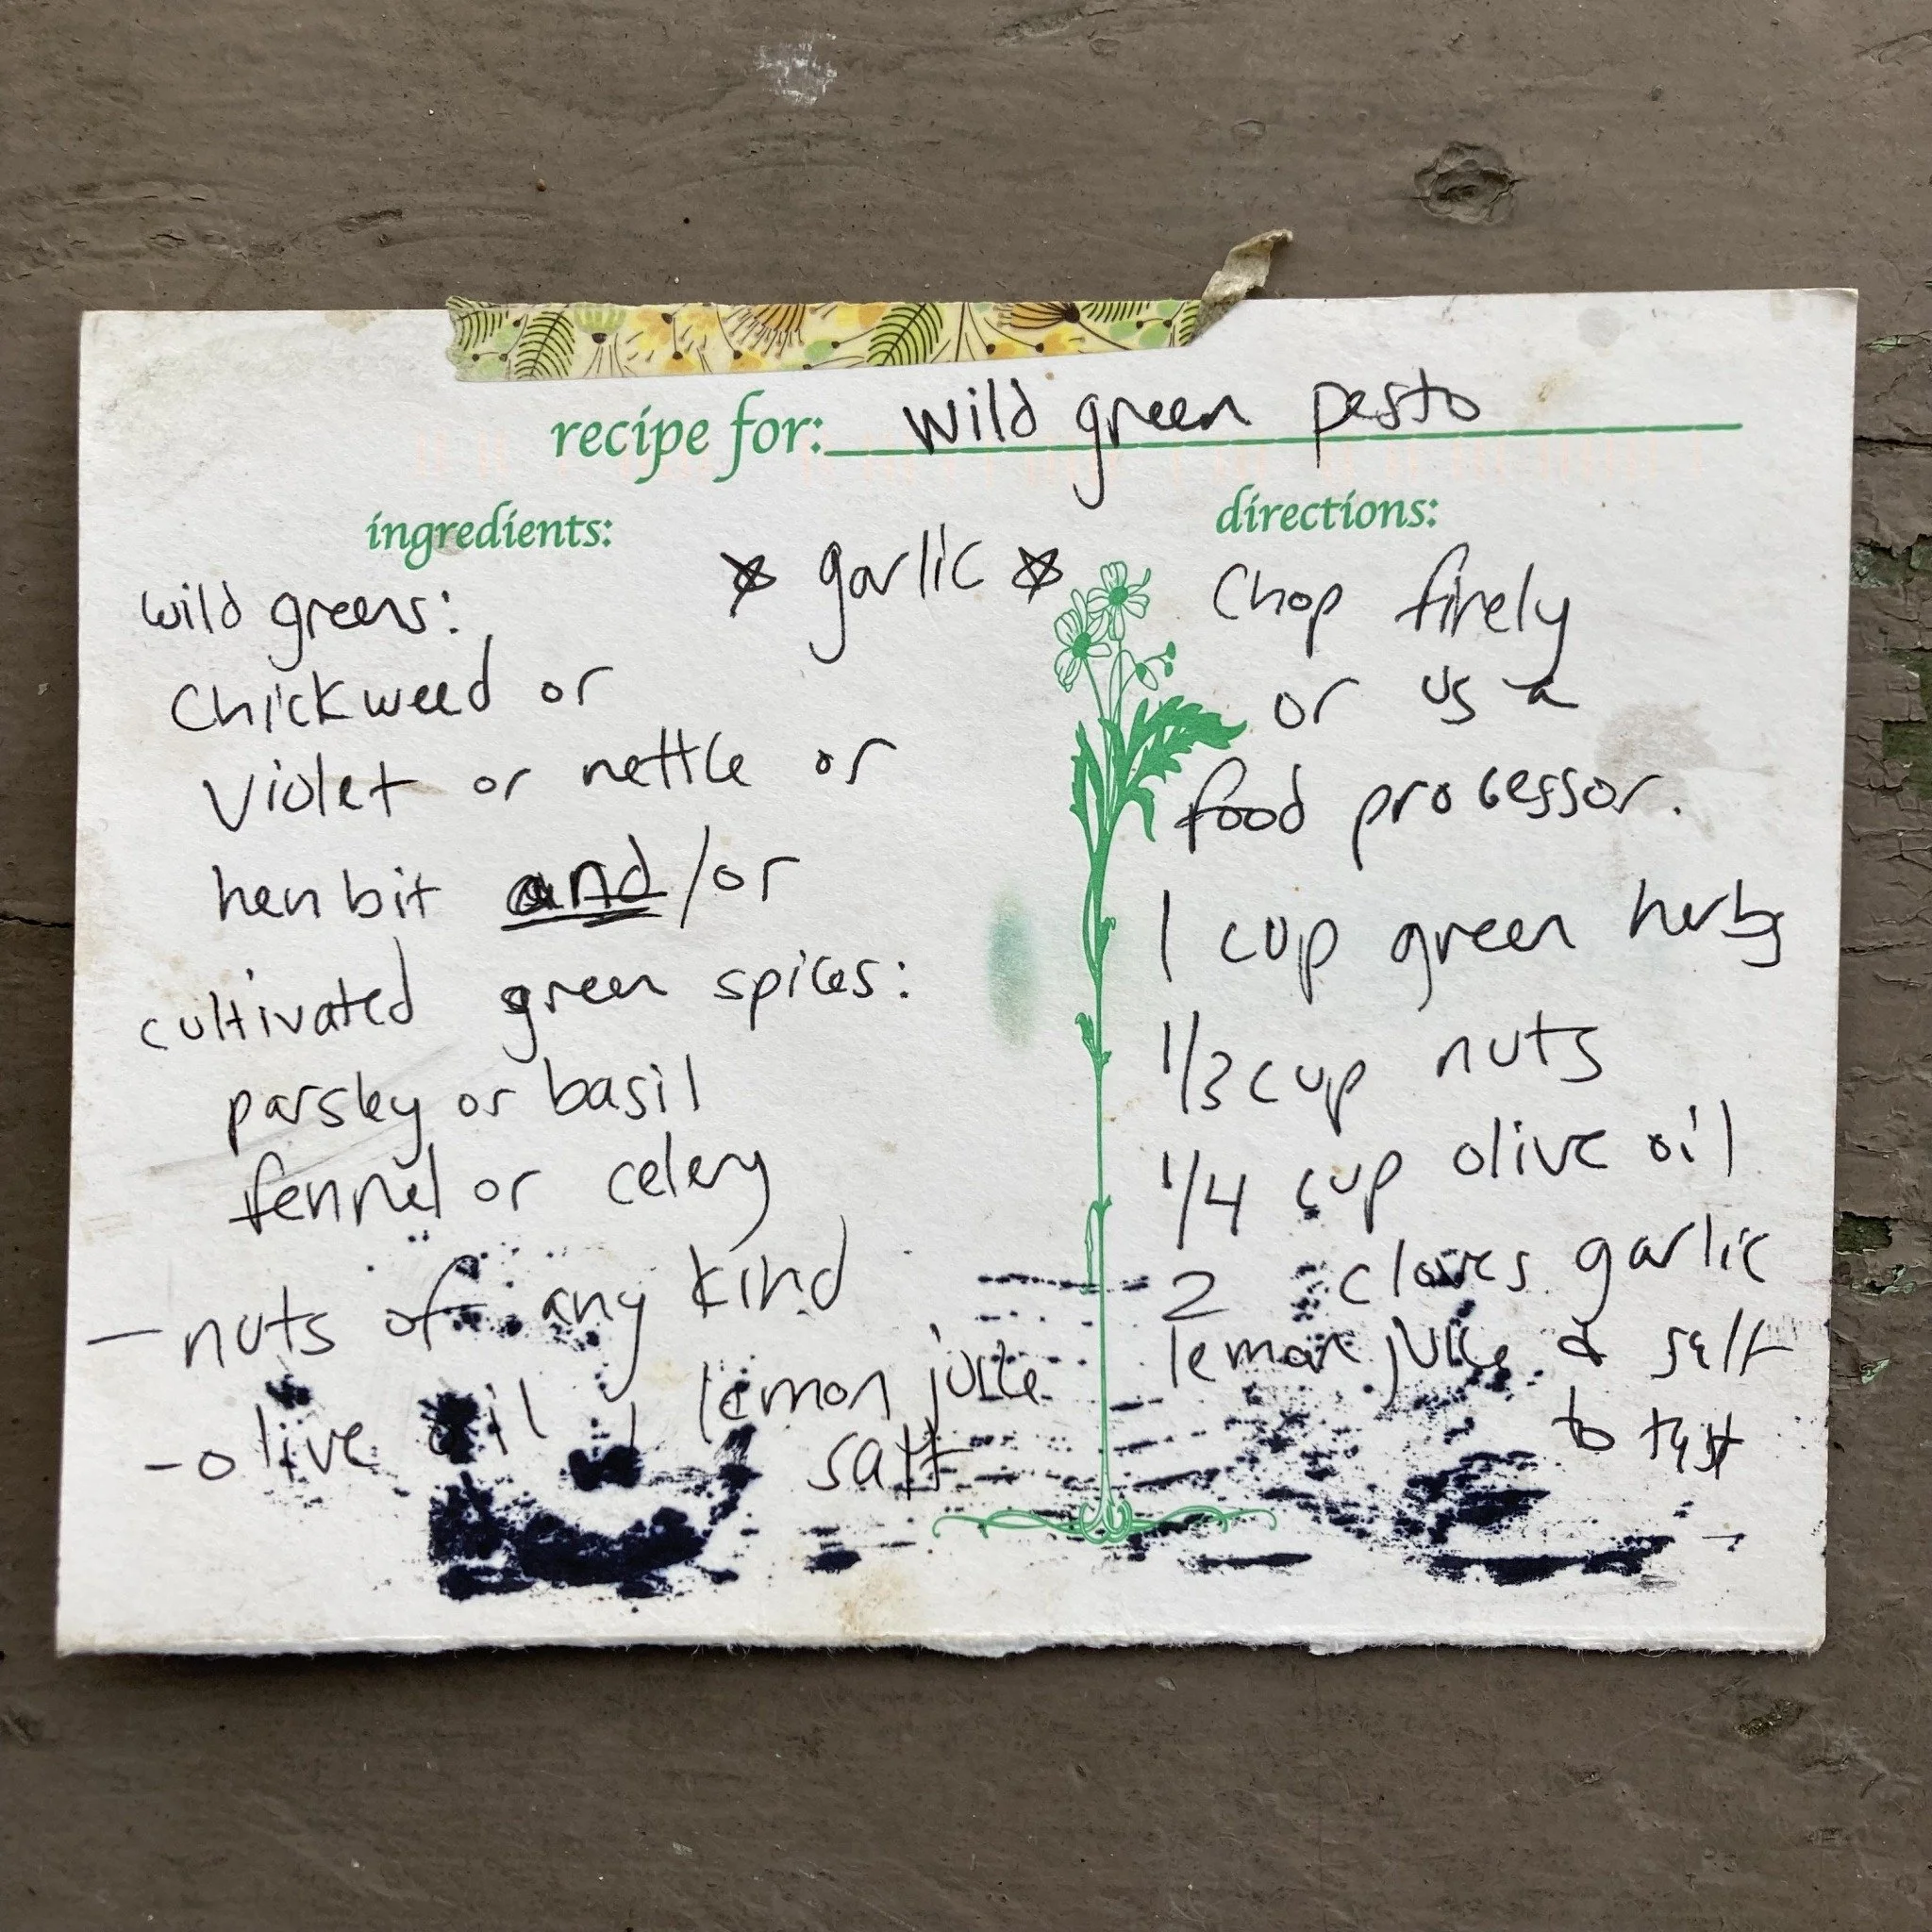 recipe for: wild green pesto
ingredients:
☆ garlic ☆
wild greens:
Chickweed or
Violet or nettle or
henbit and/or
cultivated green spices:
parsley or basil
fennel or celery
- nuts of any kind
- olive oil, lemon juice
salt
directions:
Chop finely
or us a
food processor.
1 cup green herbs
1/3 cup nuts
1/4 cup olive oil
2 cloves garlic
lemon juice & salt
to tast